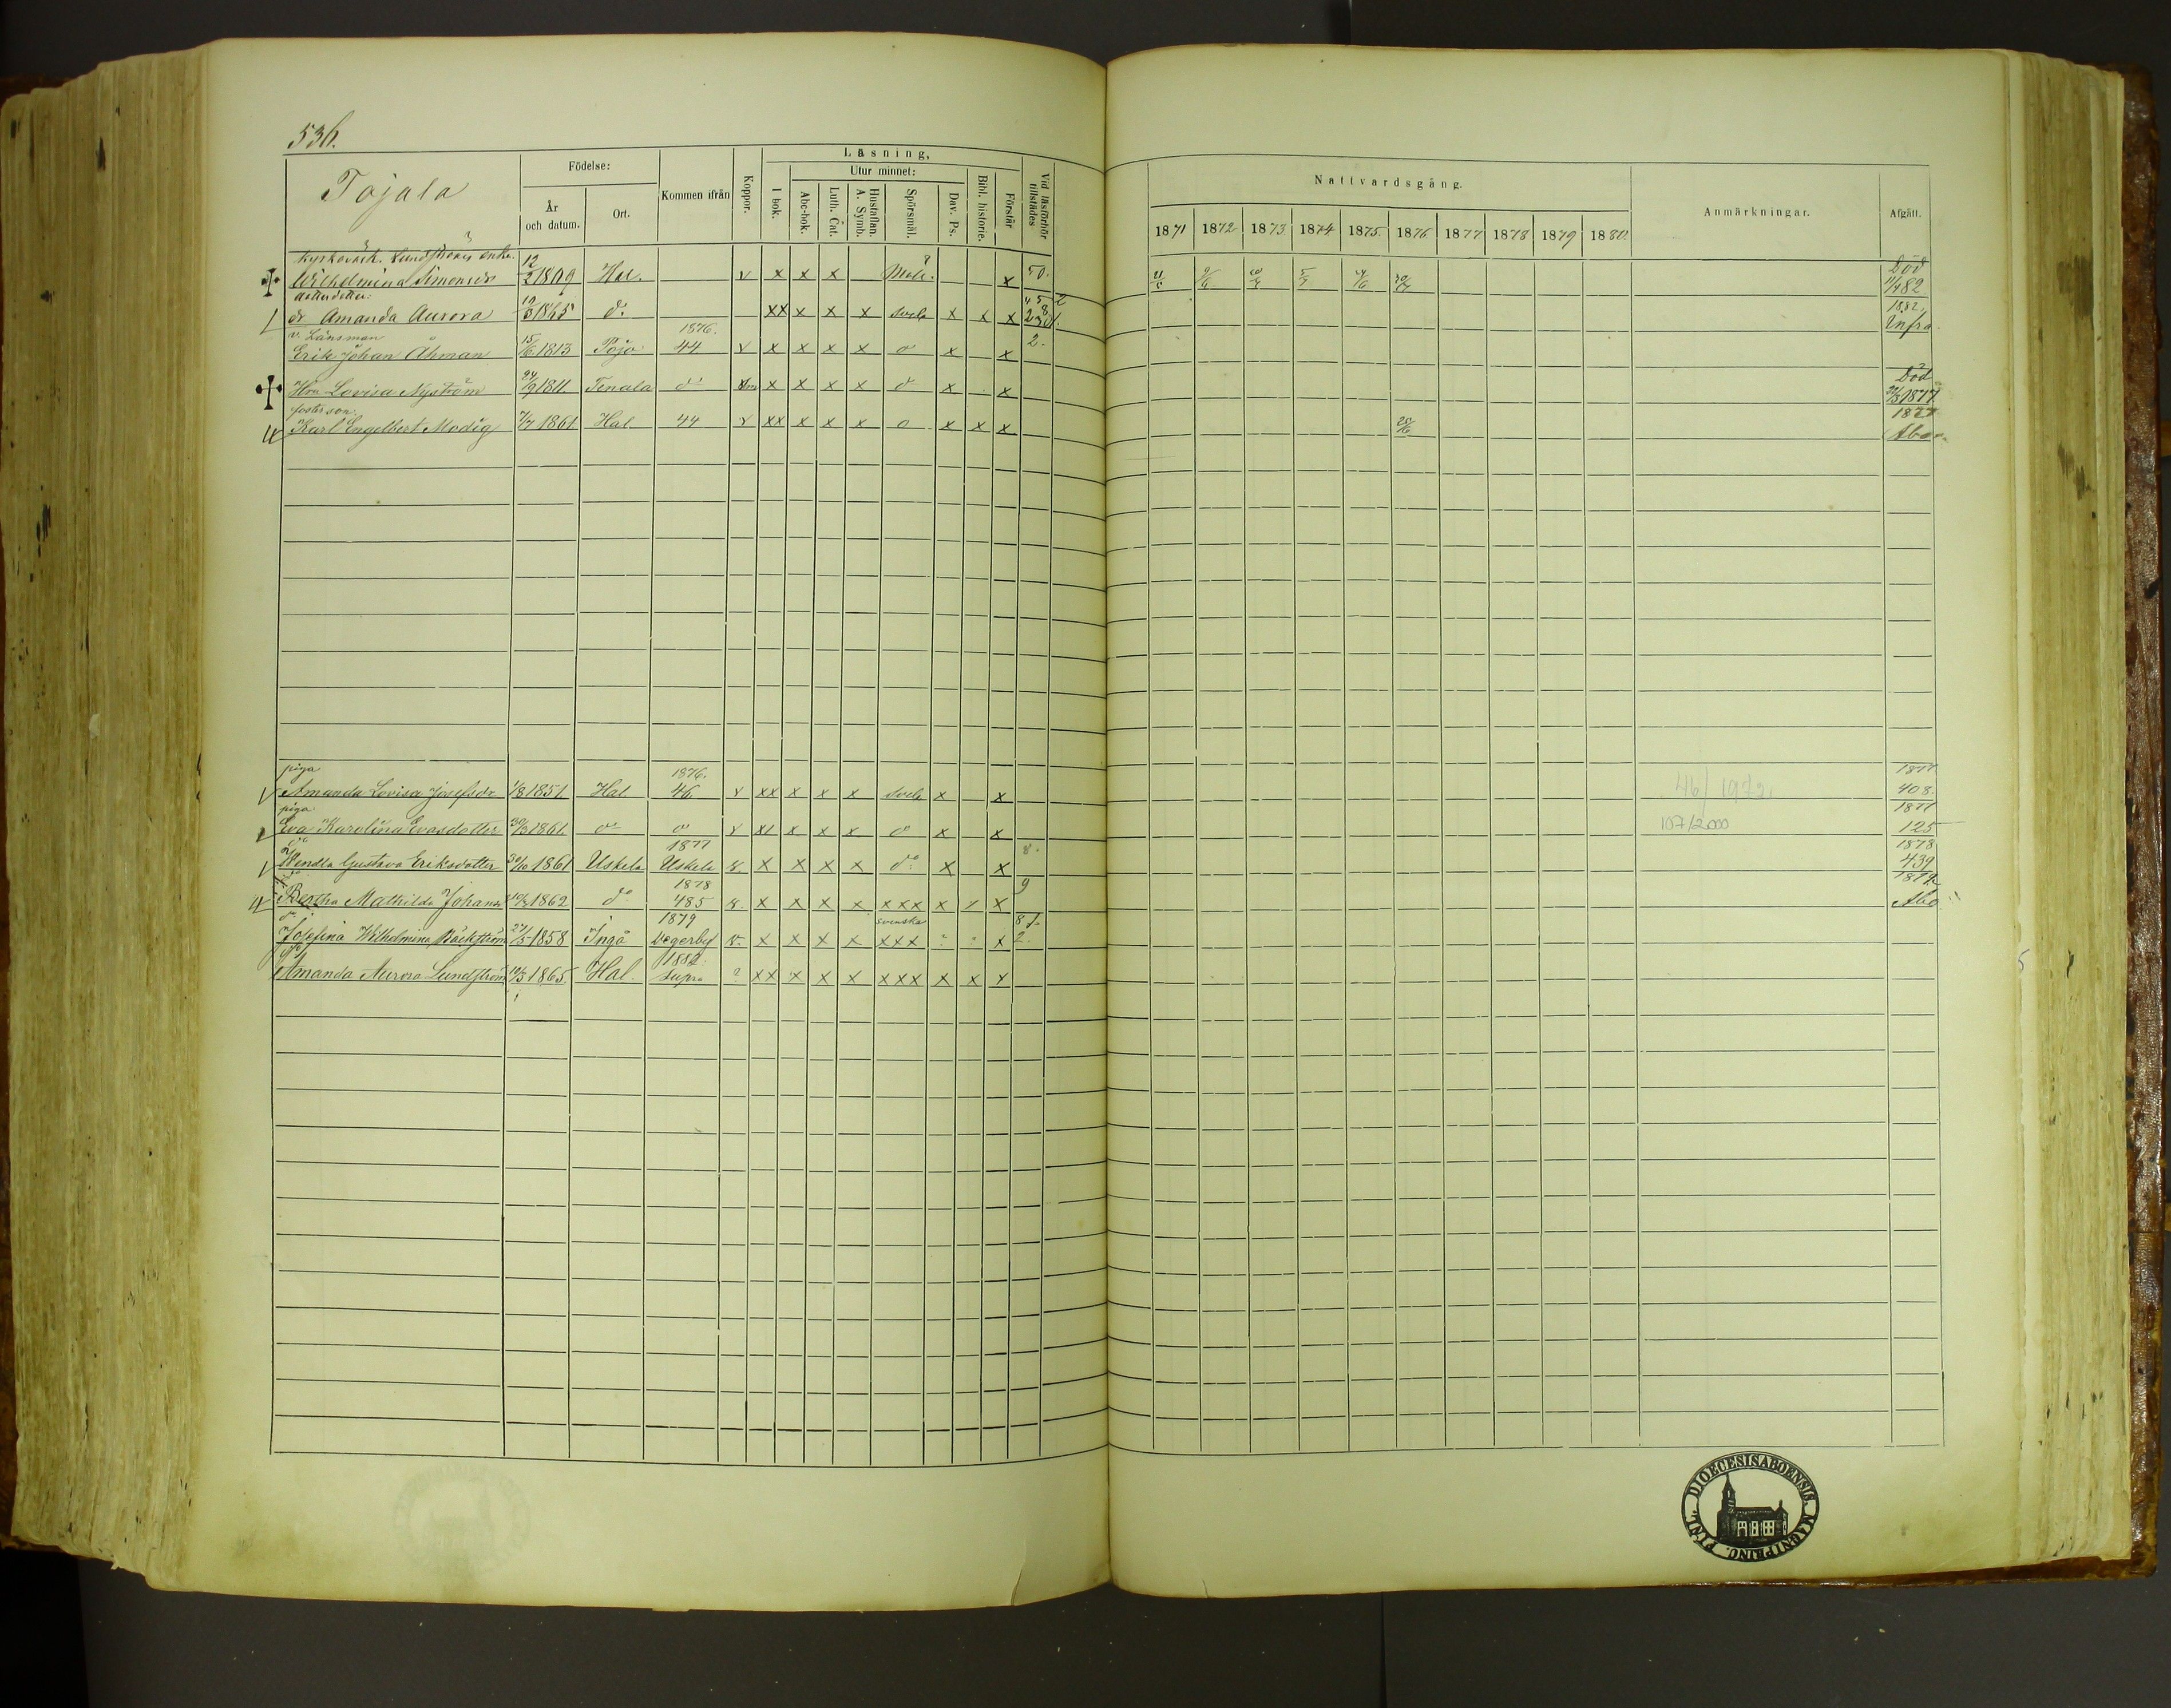 536.
Tojala
Födelse:
År och datum.
Ort.
Kommen ifrån
Koppor.
Läsning,
I bok.
Utur minnet:
Abc-bok.
Luth. Cat.
Hustaflan. A. Symb.
Spörsmål.
Dav. Ps.
Bibl. historie.
Förstår
Vid läsförhör tillstädes
Nattvardsgång.
1871 1872 1873 1874 1875. 1876 1877 1878 1879 1880.
Anmärkningar.
Afgått.
Lundströms enka.
Wilhelmina Simonsdr 12/2 1809 Hal. v x x x x 50. Död 11/4 82
dotterdotter:
dr Amanda Aurora 19/3 1865 do xx x x x x x x 1882, Infra
v. Länsman 1876.
Erik Johan Åhman 15/6 1813 Pojo 44 v x x x x o x x 2.
Hru Lovisa Nyström 24/9 1811. Tenala do x x x x do x x Död 1877.
fosterson
Karl Engelbert Modig 7/7 1861 Hal. 44 v xx x x x o x x x 25/6 1877 Åbo
piga 1876.
Amanda Lovisa Josefsdr 1/8 1851 Hal 46. v xx x x x x x 46/1972. 1877 408.
piga
Eva Karolina Evasdotter 30/3 1861. do do v x1 x x x do x x 107/2000 1877 125
do 1877
Wendla Gustava Eriksdotter 30/10 1861 Uskela Uskela x x x x do x x 8. 1878 439
do 1878
Bertha Mathilda Johansdr 1862 do 485 x x x x xxx x / x 9 1879 Åbo
do 1879 svenska
Josefina Wilhelmina Bäckström 27/5 1858 Ingå Degerby v. x x x x xxx x 2.
do 1882.
Amanda Aurora Lundström 19/3 1865. Hal. supra ? xx x x x xxx x x x
DIOECESIS ABOENSIS MAGNI PRINC. FINL.